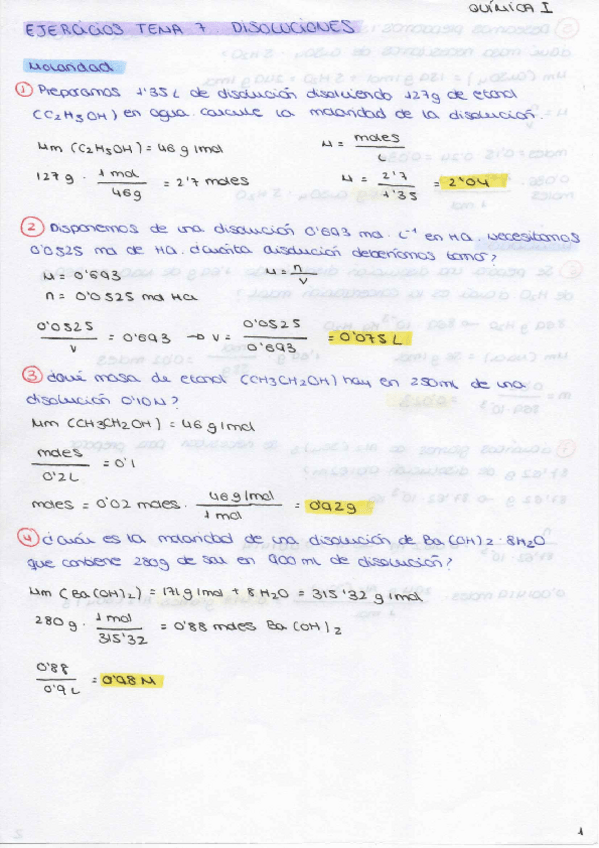 QUÍMICA I
EJERCICIOS TEMA 7 DISOLUCIONES
Molaridad
① Preparamos 1'35 L de disolución disolviendo 127g de etanol
(C2H5OH) en agua. Calcule la molaridad de la disolución.
Mm (C2H5OH) = 46 g/mol
M = moles / L
127 g · 1 mol / 46 g = 2'7 moles
M = 2'7 / 1'35 = 2'04
② Disponemos de una disolución 0'693 mol · L⁻¹ en HCl. Necesitamos
0'0525 mol de HCl. ¿Cuánta disolución deberíamos tomar?
M = 0'693
M = n / V
n = 0'0525 mol HCl
0'0525 / V = 0'693 → V = 0'0525 / 0'693 = 0'075 L
③ ¿Qué masa de etanol (CH3CH2OH) hay en 250ml de una
disolución 0'10M?
Mm (CH3CH2OH) = 46 g/mol
moles / 0'2L = 0'1
moles = 0'02 moles · 46 g/mol / 1 mol = 0'92 g
④ ¿Cuál es la molaridad de una disolución de Ba(OH)2·8H2O
que contiene 280g de sal en 900 ml de disolución?
Mm (Ba(OH)2) = 171 g/mol + 8 H2O = 315'32 g/mol
280 g · 1 mol / 315'32 = 0'88 moles Ba(OH)2
0'88 / 0'9 L = 0'98 M
1